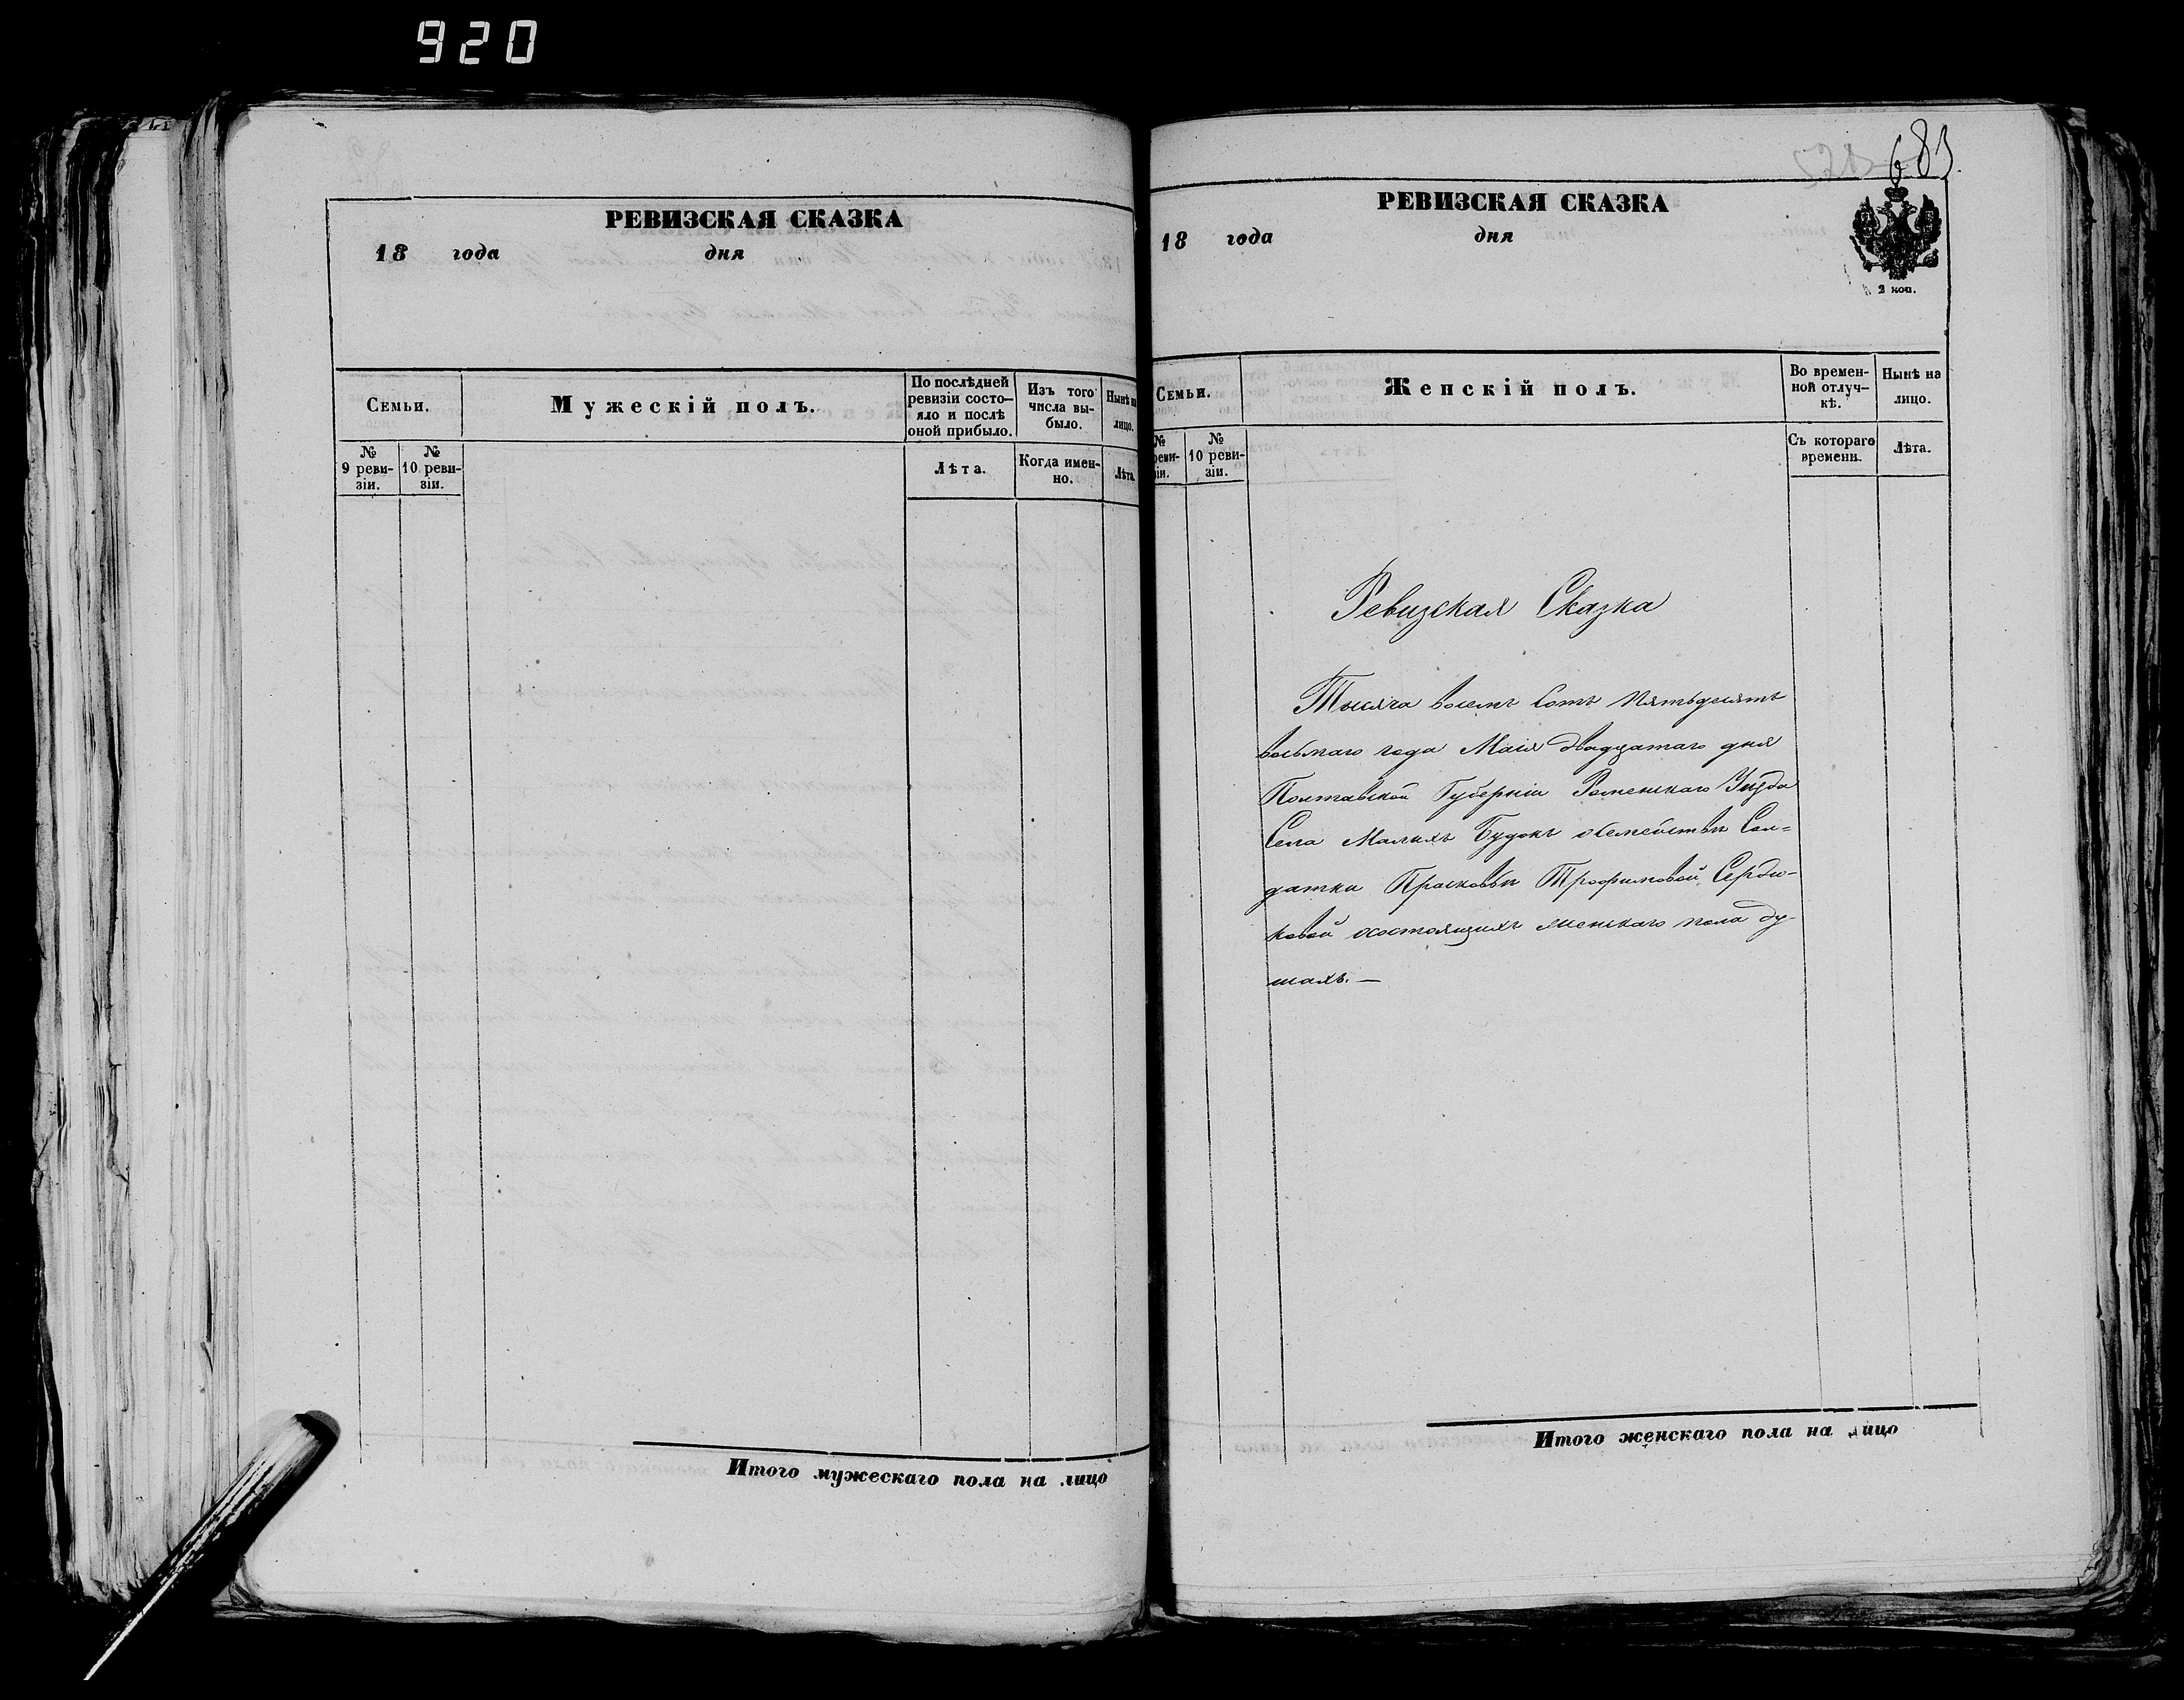 920
РЕВИЗСКАЯ СКАЗКА
18 года дня
Семьи.
Мужескій полъ.
По послѣдней ревизіи состо-
яло и послѣ
оной прибыло.
Изъ того
числа вы-
было.
Нынѣ на
лицо.
№
9 реви-
зіи.
№
10 реви-
зіи.
Лѣта.
Когда имен-
но.
Лѣта
Итого мужескаго пола на лицо
683
РЕВИЗСКАЯ СКАЗКА
18 года дня
2 коп.
Семьи.
Женскій полъ.
Во времен-
ной отлуч-
кѣ.
Нынѣ на
лицо.
№
реви-
зіи.
№
10 реви-
зіи.
Съ котораго
времени.
Лѣта.
Ревизская Сказка
Тысяча восемь сотъ пятьдесятъ
восьмаго года Маія двадцатаго дня
Полтавской Губерніи Роменскаго Уѣзда
Села Малыхъ Будокъ о семействѣ Сол=
датки Прасковьи Трофимовой Сердю-
ковой состоящихъ женскаго пола ду-
шахъ. —
Итого женскаго пола на лицо